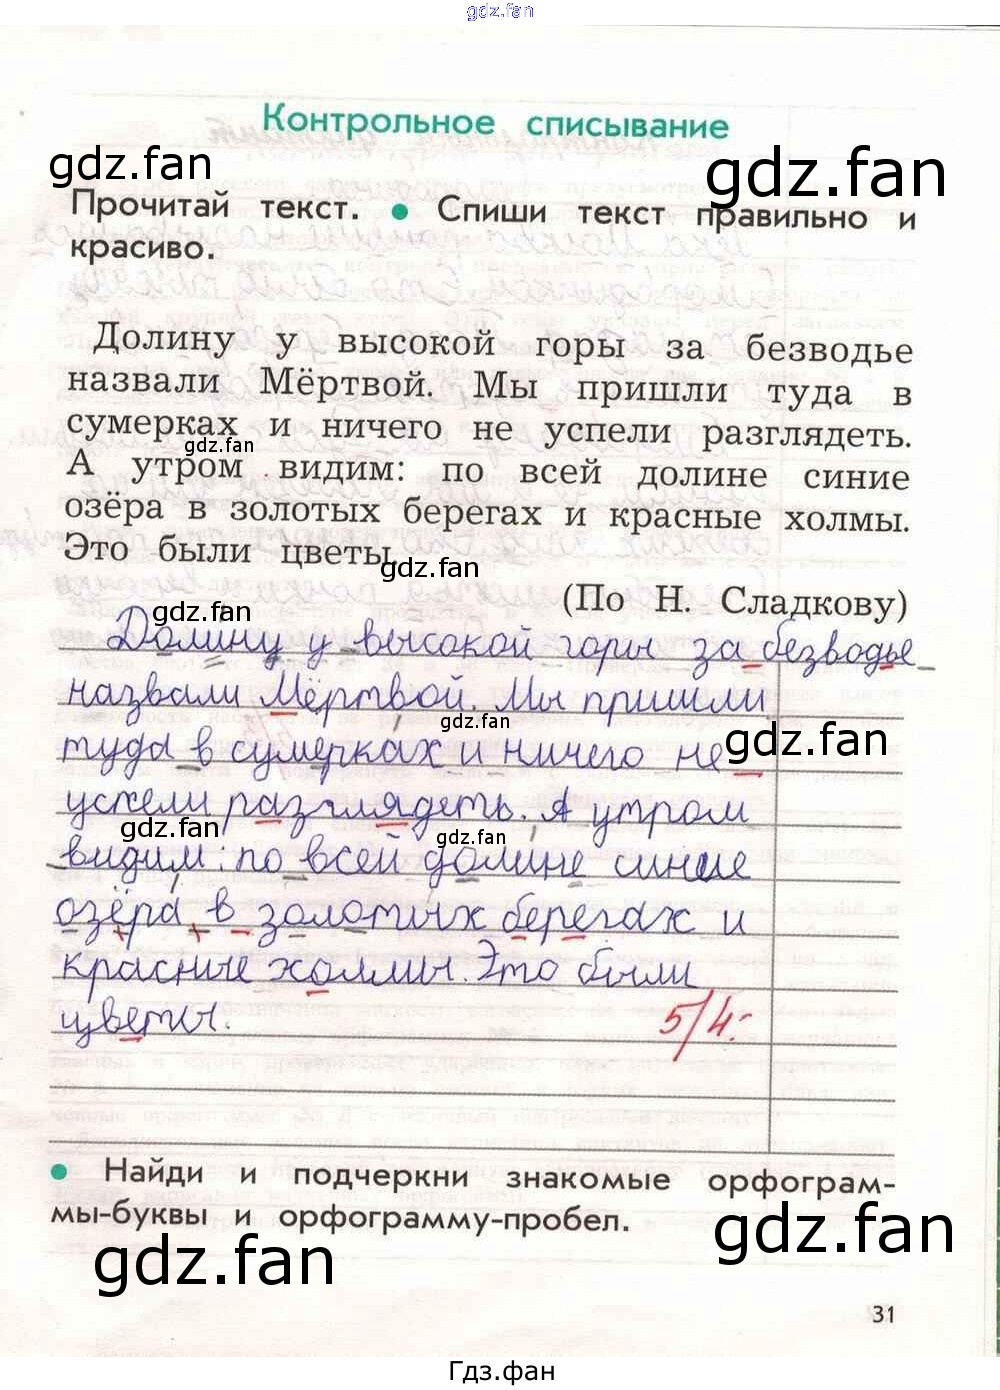 gdz.fan
Контрольное списывание
gdz.fan
gdz.fan
Прочитай текст. • Спиши текст правильно и
красиво.
Долину у высокой горы за безводье
назвали Мёртвой. Мы пришли туда в
сумерках и ничего не успели разглядеть.
gdz.fan
А утром видим: по всей долине синие
озёра в золотых берегах и красные холмы.
Это были цветы
gdz.fan
(По Н. Сладкову)
gdz.fan
Долину у высокой горы за безводье
назвали Мёртвой. Мы пришли
gdz.fan
gdz.fan
туда в сумерках и ничего не
успели разглядеть. А утром
gdz.fan
gdz.fan
видим: по всей долине синие
озёра в золотых берегах и
красные холмы. Это были
цветы.
5/4.
• Найди и подчеркни знакомые орфограм-
мы-буквы и орфограмму-пробел.
gdz.fan
gdz.fan
31
Гдз.фан